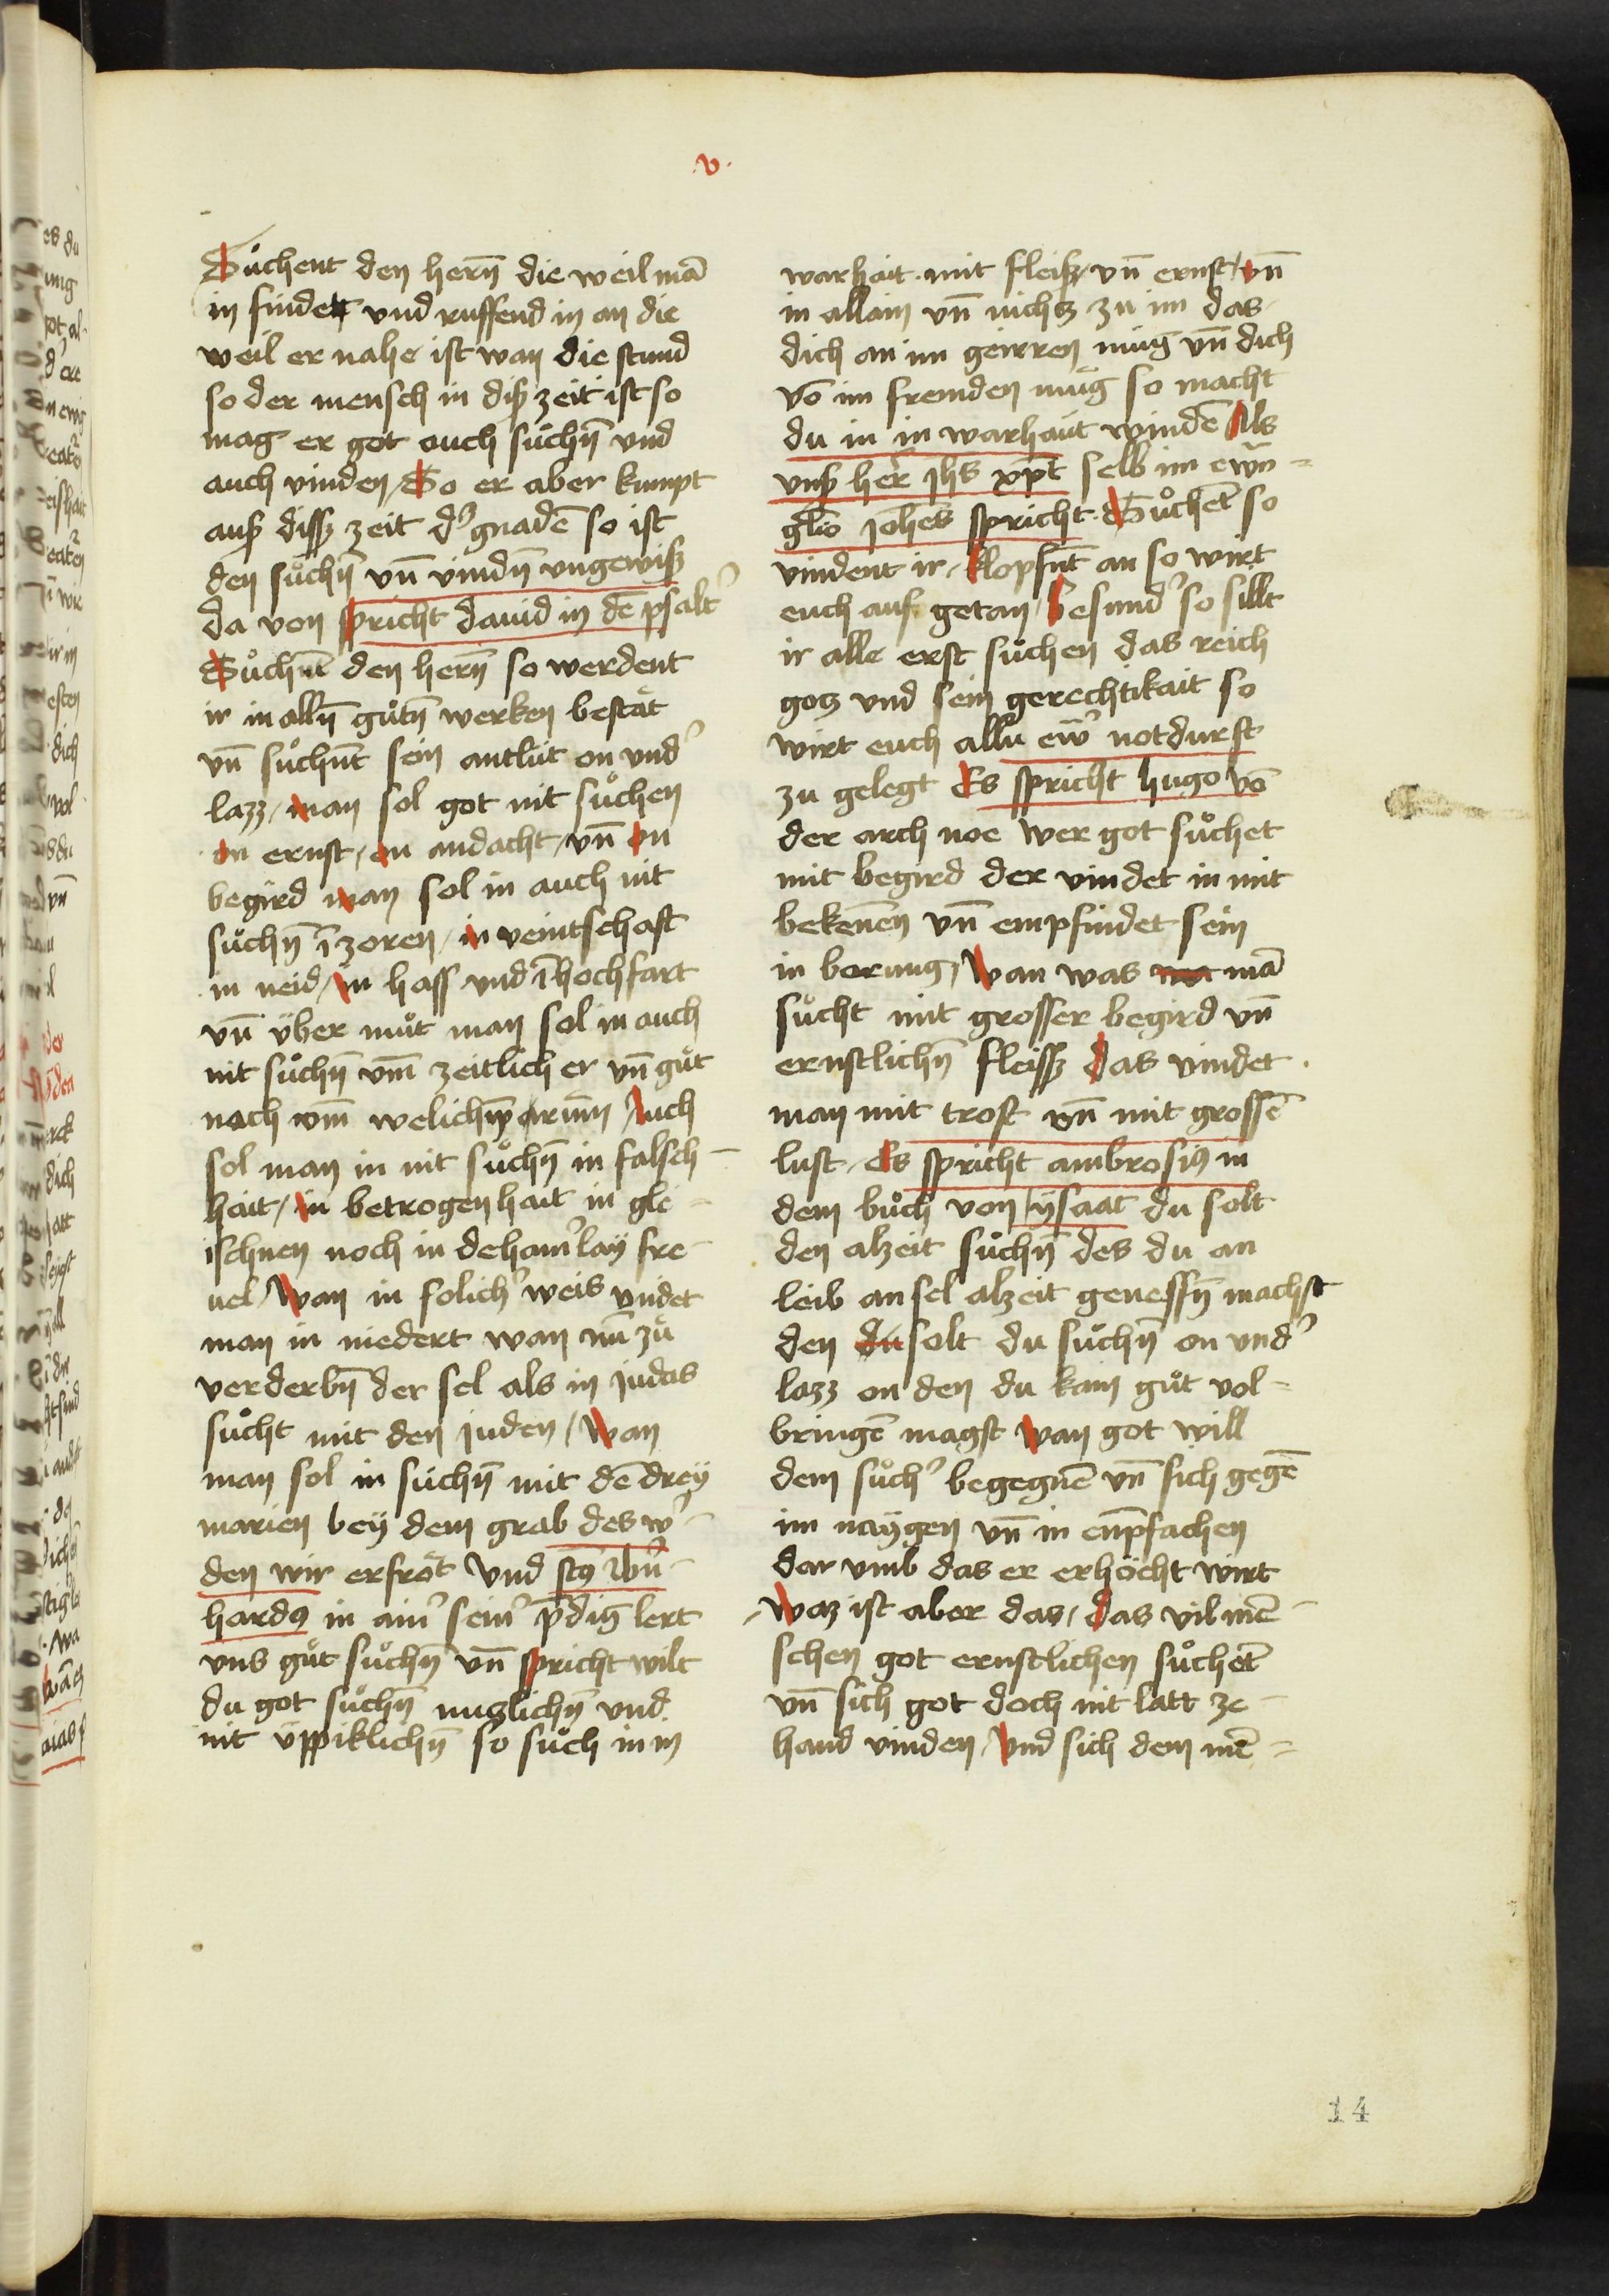 .v.
Sůchent den hern̄ die weil mā
in findet und ruffend in an die
weil er nahe ist wan die stund
so der mensch in diß zeit ist so
mag er got ouch sůchn̄ vnd
auch vinden / So er aber kumpt
auß disß zeit dˀ gnadē so ist
den sůchn̄ vn̄ vindn̄ vngewiß
da von spricht dauid in dē psaltˀ
Sůchnt den hern̄ so werdent
ir in alln̄ gůtn̄ werken bestät
vn̄ sůchn̄t sein antlüt on vndˀ
lazz / man sol got nit sůchen
on ernst / on andacht / vn̄ on
begird man sol in auch nit
sůchn̄ ī zoren / in veintschaft
in neid / in hass vnd ī hochfart
vn̄ über můt man sol in auch
nit sůchn̄ vm̄ zeitlich er vn̄ gůt
noch vm̄ welichn̄ Auch
sol man in nit sůchn̄ in falsch-
hait / in betrogenhait in gle-
ischnen noch in dehainˀlay fre-
uel / Wan in solichˀ weis vindet
man in niedert wan nu̅ zů
verderbn̄ der sel als in judas
sůcht mit den juden / Wan
man sol in sůchn̄ mit dē drey
marien bey dem grab des wˀ-
den wir erfröt Vnd scꝰ Bn̄-
hardꝰ in ainˀ seinˀ p̄dig lert
vns gůt sůchn̄ vn̄ spricht wilt
du got sůchn̄ nuzlichn̄ vnd
nit üppiklichn̄ so sůch in in
warhait mit fleiß / vn̄ ernst / vn̄
in allain vn̄ nichtz zu im das
dich an im geirren müg vn̄ dich
vō im fremden müg so macht
du in in warhait vindē Als
vnß her̄ Jhs xpt̄ selb im ewn̄-
glio Johes spricht Sůchēt so
vindent ir / klopfnt an so wirt
euch auf getan / besundˀ so süllt
ir alle erst sůchen das reich
gotz vnd sein gerechtikait so
wirt euch allü ew̄ˀ notdurft
zu gelegt Es spricht hugo vō
der arch noe wer got sůchet
mit begird der vindet in mit
bekēnen vn̄ empfindet sein
in borung / Wan was mā
sůcht mit grosser begird vn̄
ernstlichn̄ fleisß das vindet
man mit trost vn̄ mit grossē
lust / Es spricht ambrosiꝰ in
dem bůch von ysaac du solt
den alzeit sůchn̄ des du an
leib an sel alzeit genessn̄ machst
den du solt du sůchn̄ on vndˀ
lazz on den du kain gůt vol-
bringē magst Wan got will
dem sůchˀ begegnē vn̄ sich gegē
im naygen vn̄ in enpfachen
dar vmb das er erhöcht wirt
Waz ist aber das / das vil mē-
schen got ernstlichen sůchēt
vn̄ sich got doch nit latt ze-
hand vinden / Vnd sich dem mē-
14